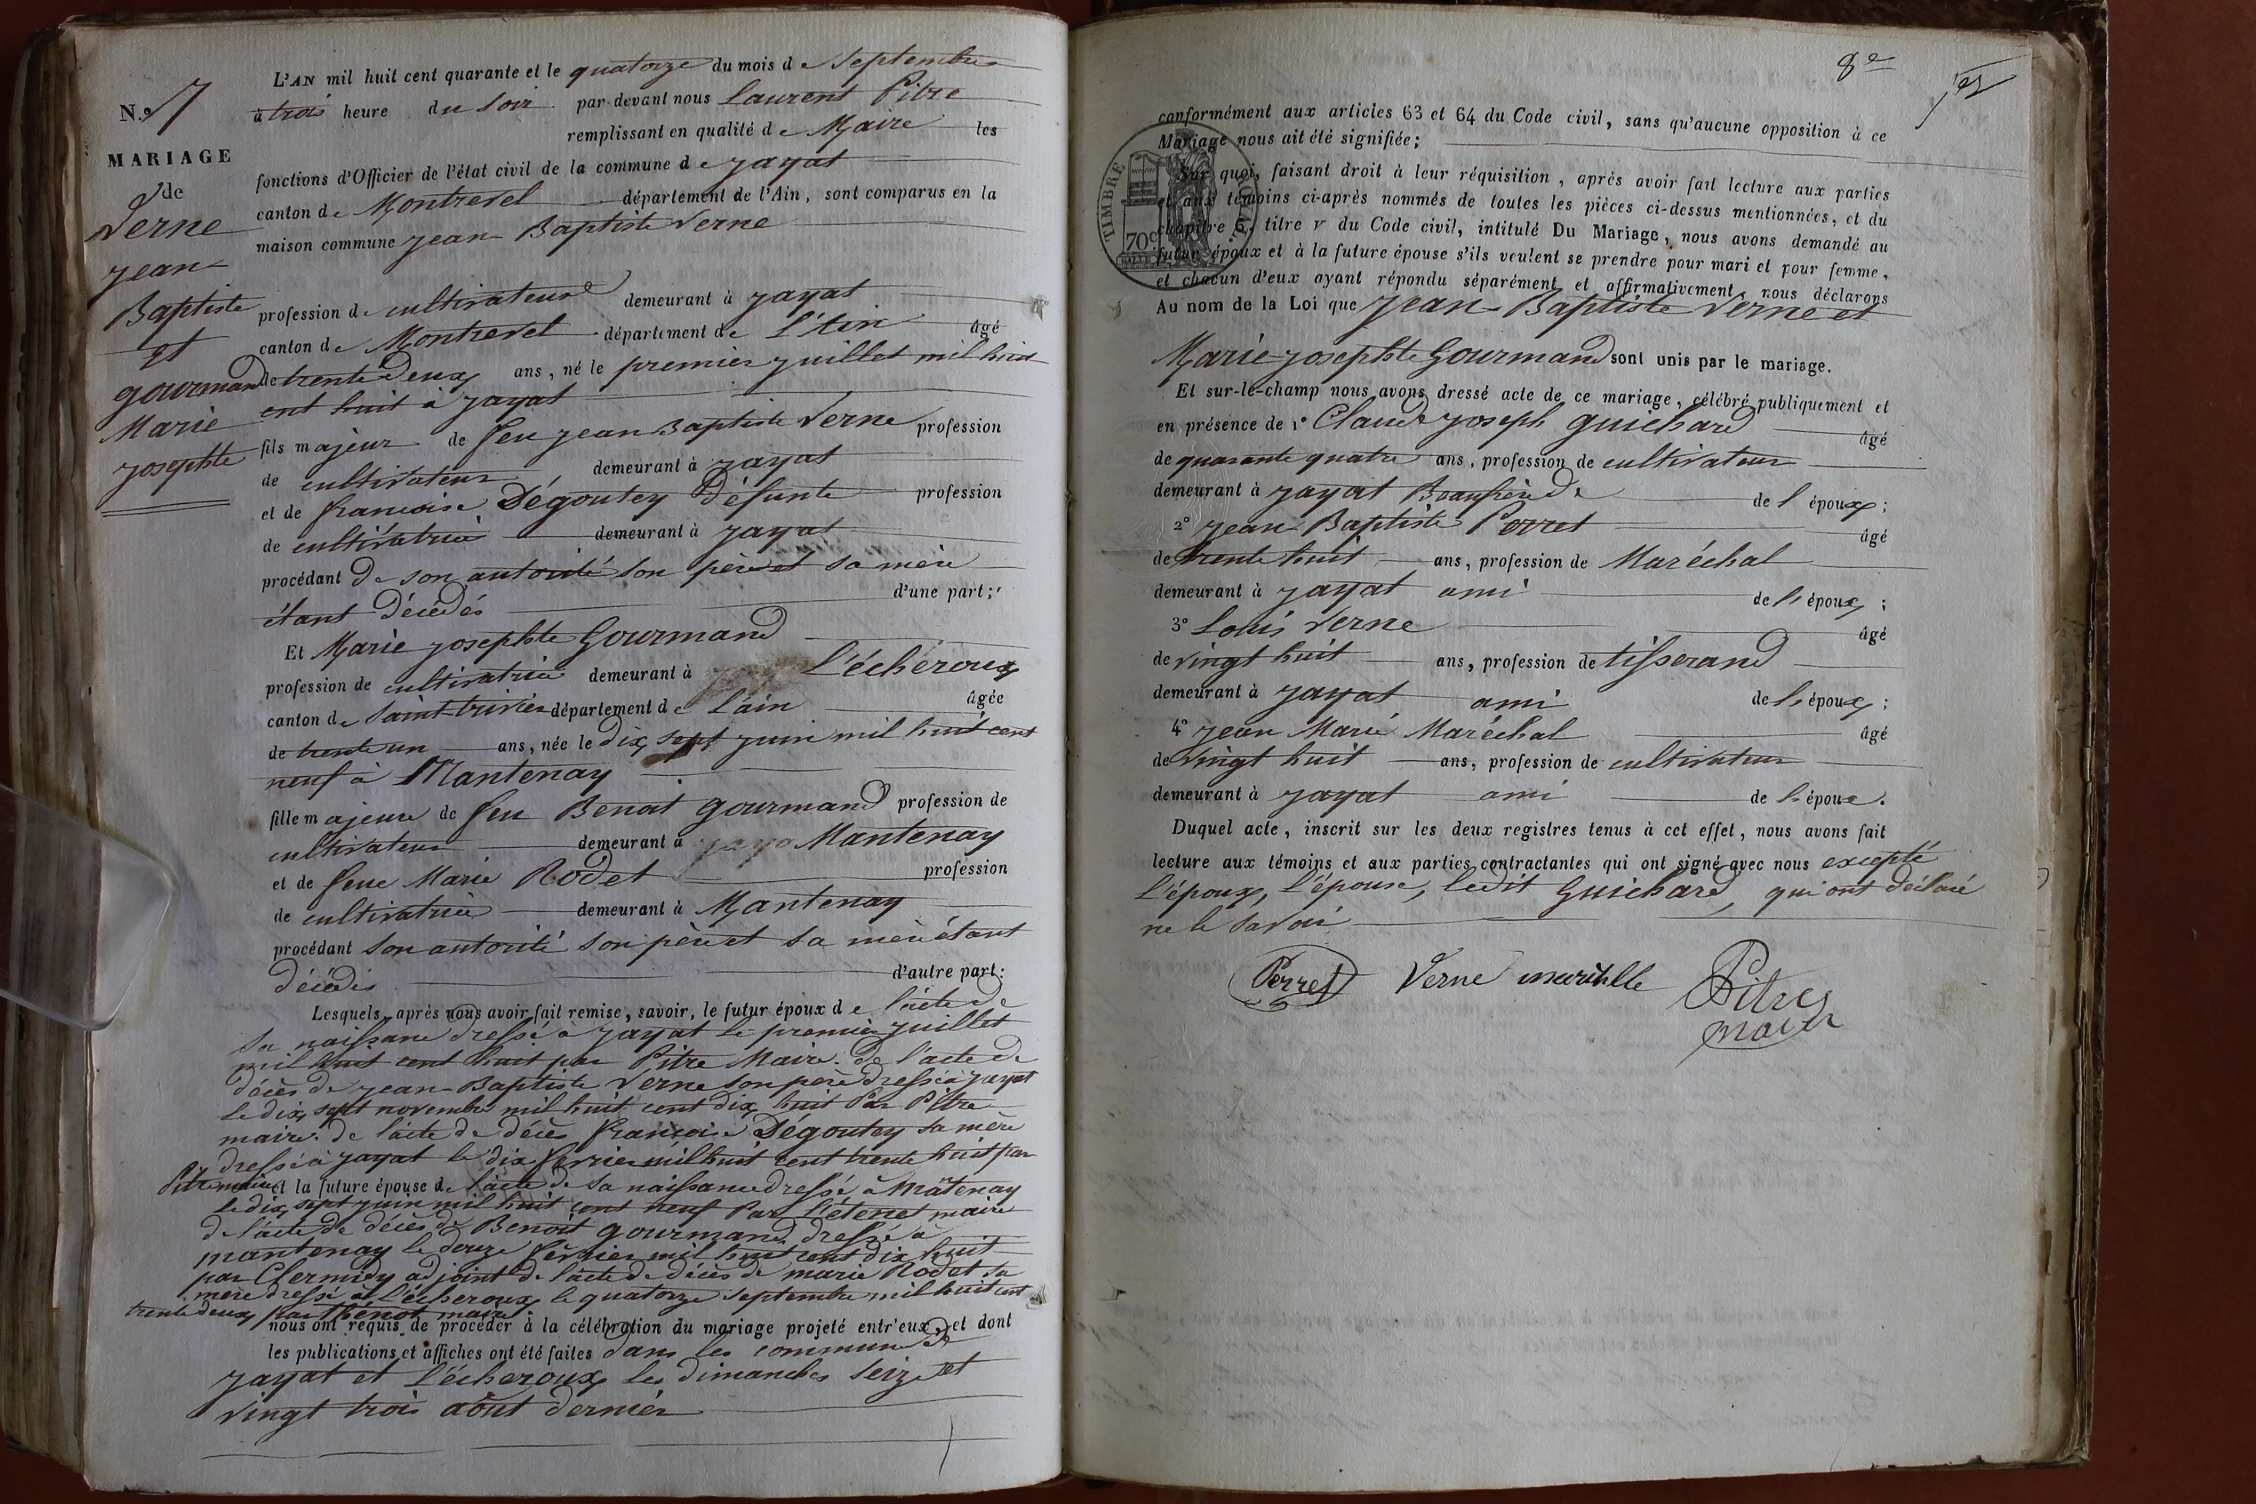 N.o 7
MARIAGE
de
Verne
jean
Baptiste
et
gourmand
Marie
josephte
L'AN mil huit cent quarante et le quatorze du mois de Septembre
à trois heure du soir par-devant nous Laurent Pitre
remplissant en qualité de Maire les
fonctions d'Officier de l'état civil de la commune de jayat
canton de Montrevel département de l'Ain, sont comparus en la
maison commune jean Baptiste Verne
profession de cultivateur demeurant à jayat
canton de Montrevel département de L'Ain âgé
de trente deux ans, né le premier juillet mil huit
cent huit à jayat
fils majeur de feu jean Baptiste Verne profession
de cultivateur demeurant à jayat
et de francoise Dégoutey Défunte profession
de cultivatrice demeurant à jayat
procédant De son autorité son père et sa mère
étant Décédés d'une part;
Et Marie josephte Gourmand
profession de cultivatrice demeurant à L'écheroux
canton de Saint-trivier département de L'ain âgée
de trente un ans, née le dix sept juin mil huit cent
neuf à Mantenay
fille majeure de feu Benoit gourmand profession de
cultivateur demeurant à Mantenay
et de feue Marie Rodet profession
de cultivatrice demeurant à Mantenay
procédant son autorité son père et sa mère étant
décédés d'autre part:
Lesquels, après nous avoir fait remise, savoir, le futur époux de l'acte de
sa naissance dressé à jayat le premier juillet
mil huit cent huit par Pitre Maire. de l'acte de
décès de jean-Baptiste Verne son père dressé à jayat
le dix sept novembre mil huit cent dix huit Par Pitre
maire. de l'acte de décès francoise Dégoutey sa mère
dressé à jayat le dix fevrier mil huit cent trente huit par
Pitre maire et la future épouse de l'acte de sa naissance dressé à Mantenay
le dix sept juin mil huit cent neuf Par L'étenet maire
de l'acte de décès de Benoit gourmand dressé à
mantenay le douze fevrier mil huit cent dix huit
par Chermidy adjoint de l'acte de décès de marie Rodet sa
mere dressé à L'écheroux le quatorze septembre mil huit cent
trente deux par Thénoz maire
nous ont requis de procéder à la célébration du mariage projeté entr'eux, et dont
les publications et affiches ont été faites dans les commune de
jayat et L'écheroux les dimanches seize et
vingt trois aôut dernier
8e
conformément aux articles 63 et 64 du Code civil, sans qu'aucune opposition à ce
Mariage nous ait été signifiée;
TIMBRE ROYAL
70c
Sur quoi, faisant droit à leur réquisition, après avoir fait lecture aux parties
et aux témoins ci-après nommés de toutes les pièces ci-dessus mentionnées, et du
chapitre 6, titre v du Code civil, intitulé Du Mariage, nous avons demandé au
futur époux et à la future épouse s'ils veulent se prendre pour mari et pour femme,
et chacun d'eux ayant répondu séparément et affirmativement, nous déclarons
Au nom de la Loi que jean-Baptiste Verne et
Marie josephte Gourmand sont unis par le mariage.
Et sur-le-champ nous avons dressé acte de ce mariage, célébré publiquement et
en présence de 1° Claude joseph guichard âgé
de quarante quatre ans, profession de cultivateur
demeurant à jayat Beaufrère de de l'époux;
2° jean Baptiste Perret âgé
de trente huit ans, profession de Maréchal
demeurant à jayat ami de l'époux;
3° Louis Verne âgé
de vingt huit ans, profession de tisserand
demeurant à jayat ami de l'époux;
4° jean Marie Maréchal âgé
de vingt huit ans, profession de cultivateur
demeurant à jayat ami de l'épouse.
Duquel acte, inscrit sur les deux registres tenus à cet effet, nous avons fait
lecture aux témoins et aux parties contractantes qui ont signé avec nous excepté
l'époux, l'épouse, ledit Guichard, qui ont déclaré
ne le savoir
Perret Verne Pitre
maire